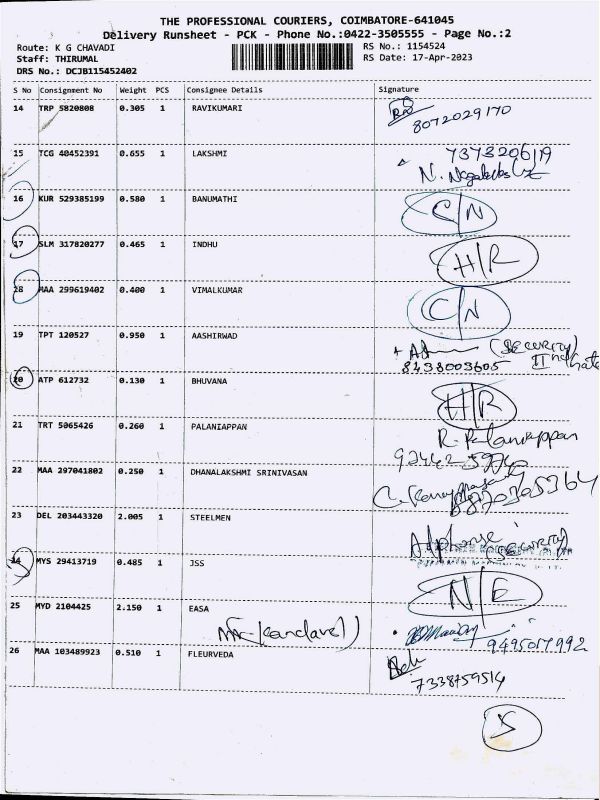 THE PROFESSIONAL COURIERS, COIMBATORE-641045
Delivery Runsheet - PCK - Phone No.:0422-3505555 - Page No.:2
Route: K G CHAVADI RS No.: 1154524
Staff: THIRUMAL RS Date: 17-Apr-2023
DRS No.: DCJB115452402
S No Consignment No Weight PCS Consignee Details Signature
14 TRP 5820808 0.305 1 RAVIKUMARI
8072029170
15 TCG 40452391 0.655 1 LAKSHMI 7373206119
N.
16 KUR 529385199 0.580 1 BANUMATHI C/N
17 SLM 317820277 0.465 1 INDHU H/R
18 MAA 299619402 0.400 1 VIMALKUMAR C/N
19 TPT 120527 0.950 1 AASHIRWAD (Security)
8438003605 IInd Gate
20 ATP 612732 0.130 1 BHUVANA H/R
21 TRT 5065426 0.260 1 PALANIAPPAN R. Palaniappan
22 MAA 297041802 0.250 1 DHANALAKSHMI SRINIVASAN
C.
23 DEL 203443320 2.005 1 STEELMEN
Alphonse (Security)
24 MYS 29413719 0.485 1 JSS N/E
25 MYD 2104425 2.150 1 EASA
9495017992
26 MAA 103489923 0.510 1 FLEURVEDA
7338759514
5